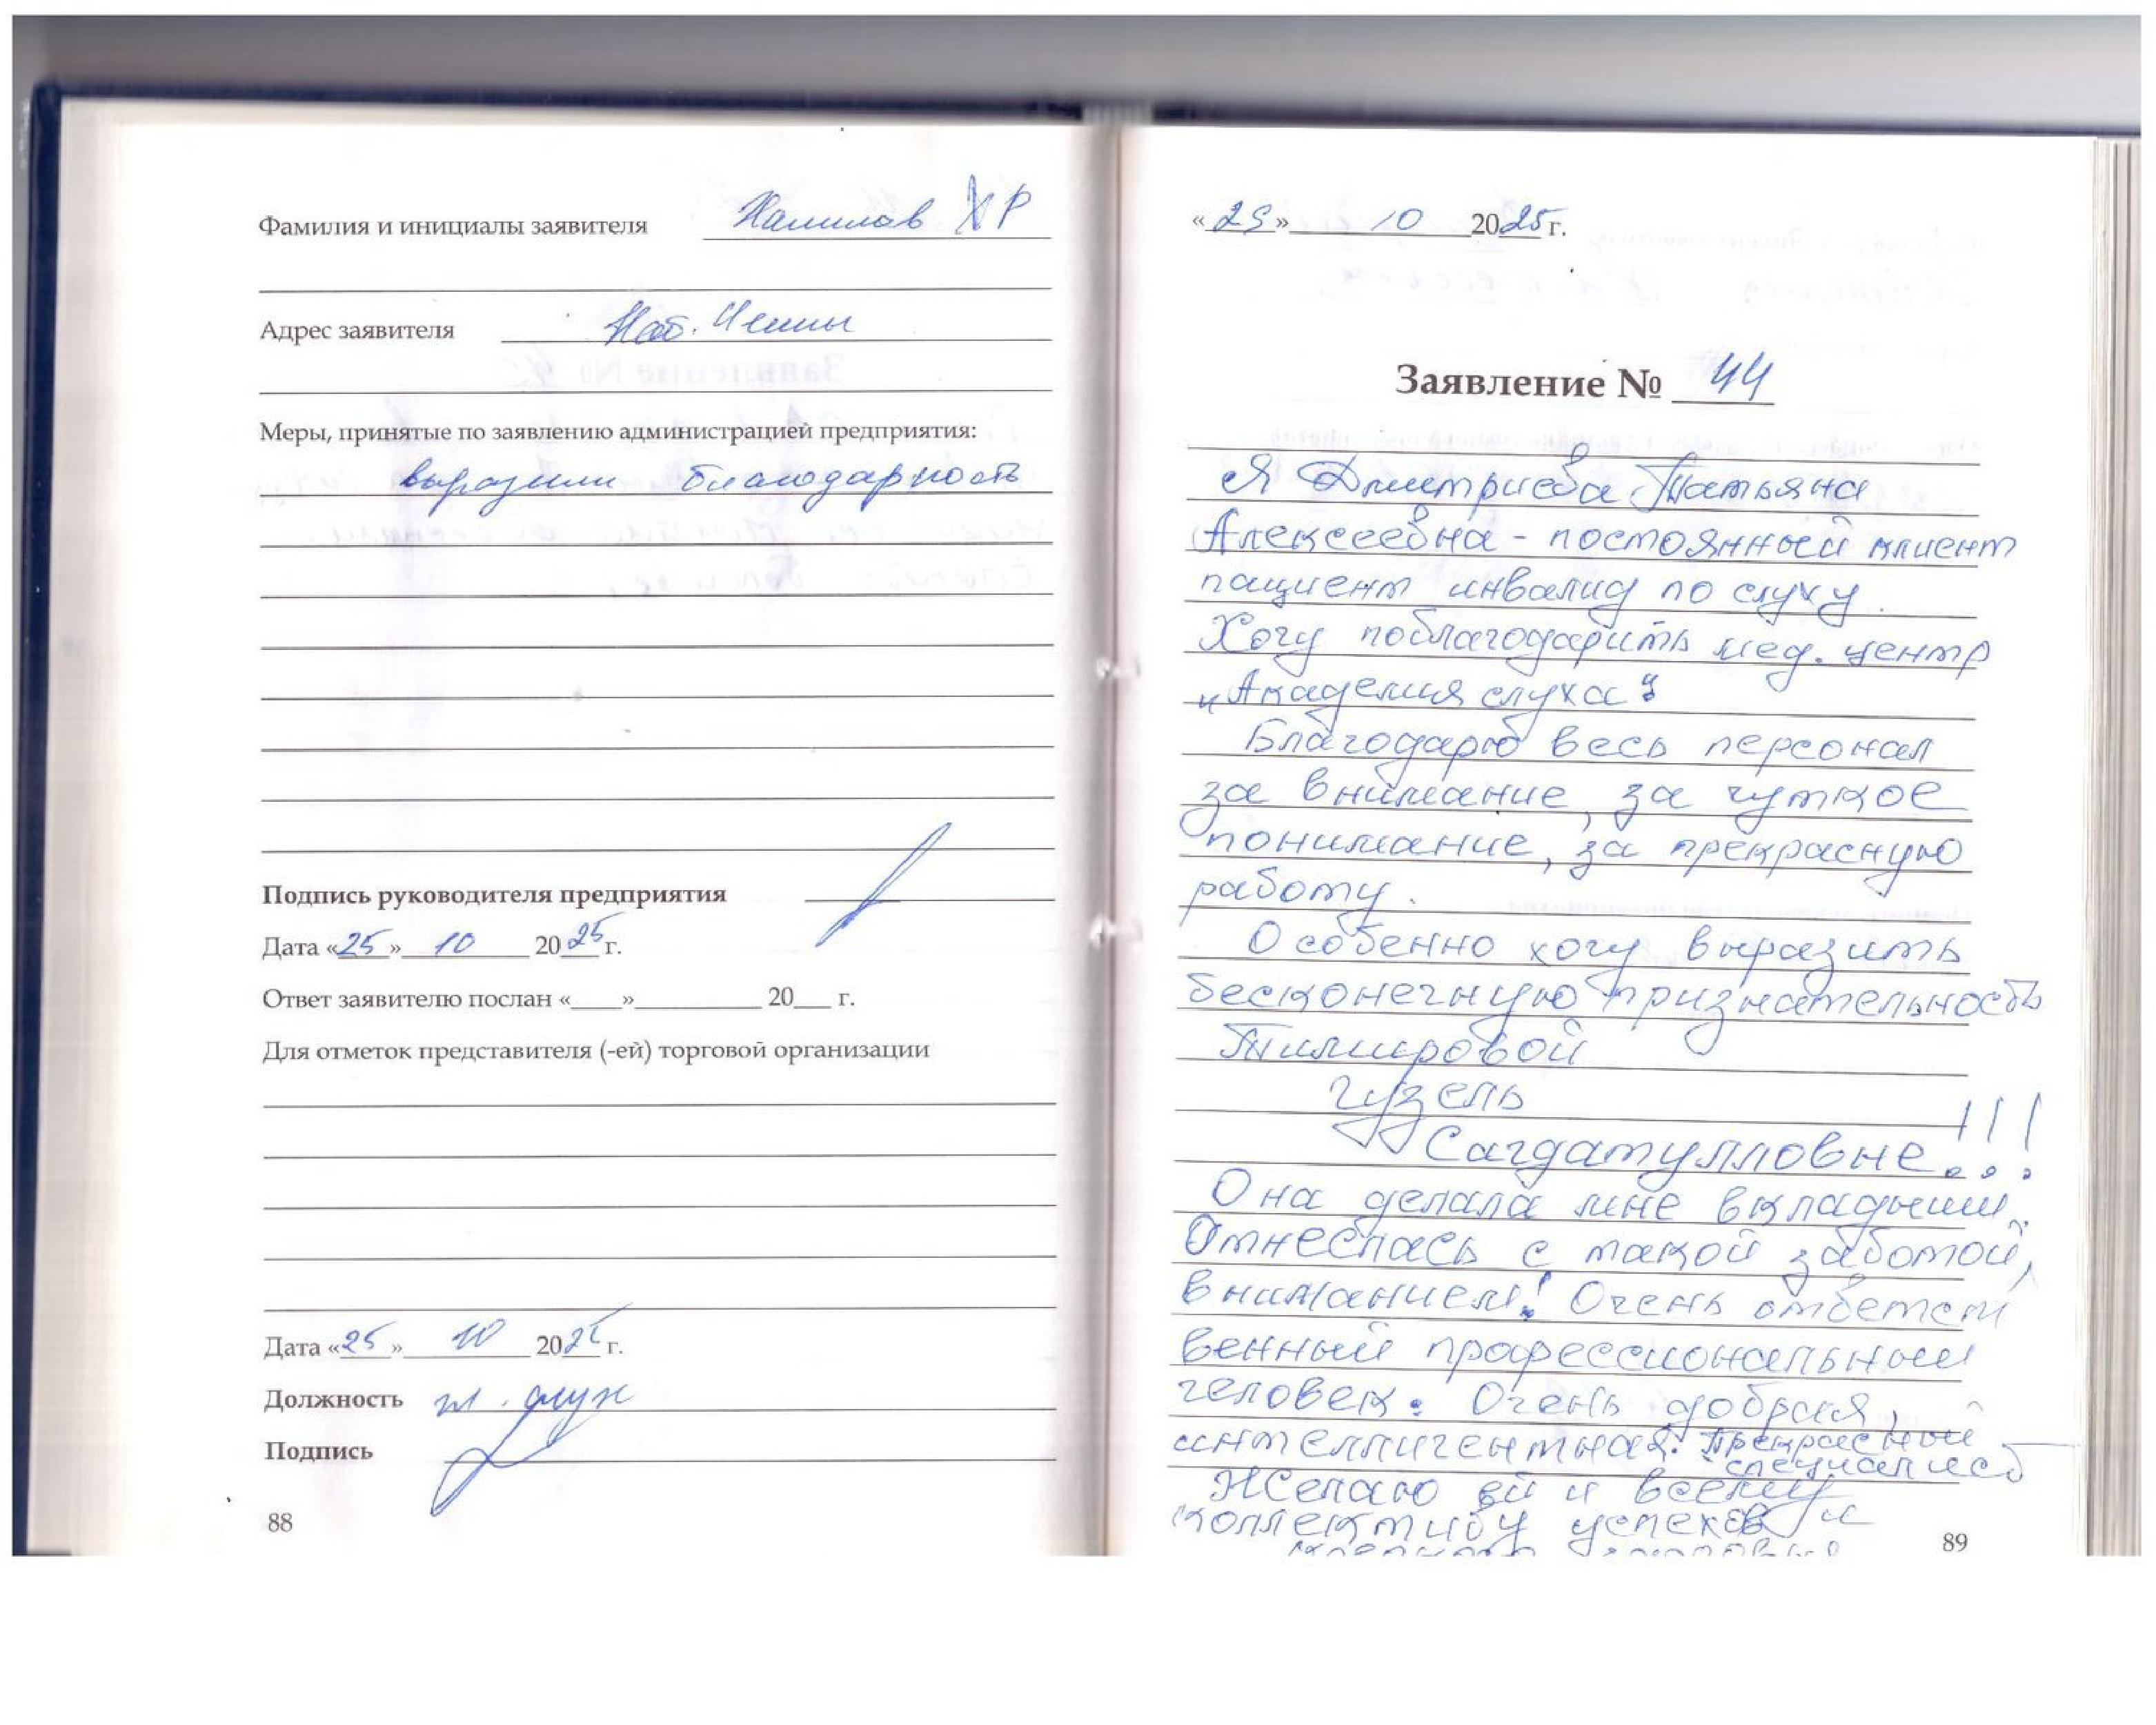 Фамилия и инициалы заявителя Халилов Х Р
Адрес заявителя Наб. Челны
Меры, принятые по заявлению администрацией предприятия:
выразили благодарность
Подпись руководителя предприятия
Дата «25» 10 2025 г.
Ответ заявителю послан «___»__________ 20___ г.
Для отметок представителя (-ей) торговой организации
Дата «25» 10 2025 г.
Должность
Подпись
88
«25» 10 2025 г.
Заявление № 44
Я Дмитриева Татьяна
Алексеевна - постоянный клиент
пациент инвалид по слуху.
Хочу поблагодарить мед. центр
„Академия слуха"
Благодарю весь персонал
за внимание, за чуткое
понимание, за прекрасную
работу.
Особенно хочу выразить
бесконечную признательность
Тимировой
Гузель
Сагдатулловне!!!
Она делала мне вкладыши.
Отнеслась с такой заботой,
вниманием! Очень ответст
венный профессиональный
человек. Очень добрая,
интеллигентная. Прекрасный
специалист
Желаю ей и всему
коллективу успехов и
крепкого здоровья!
89